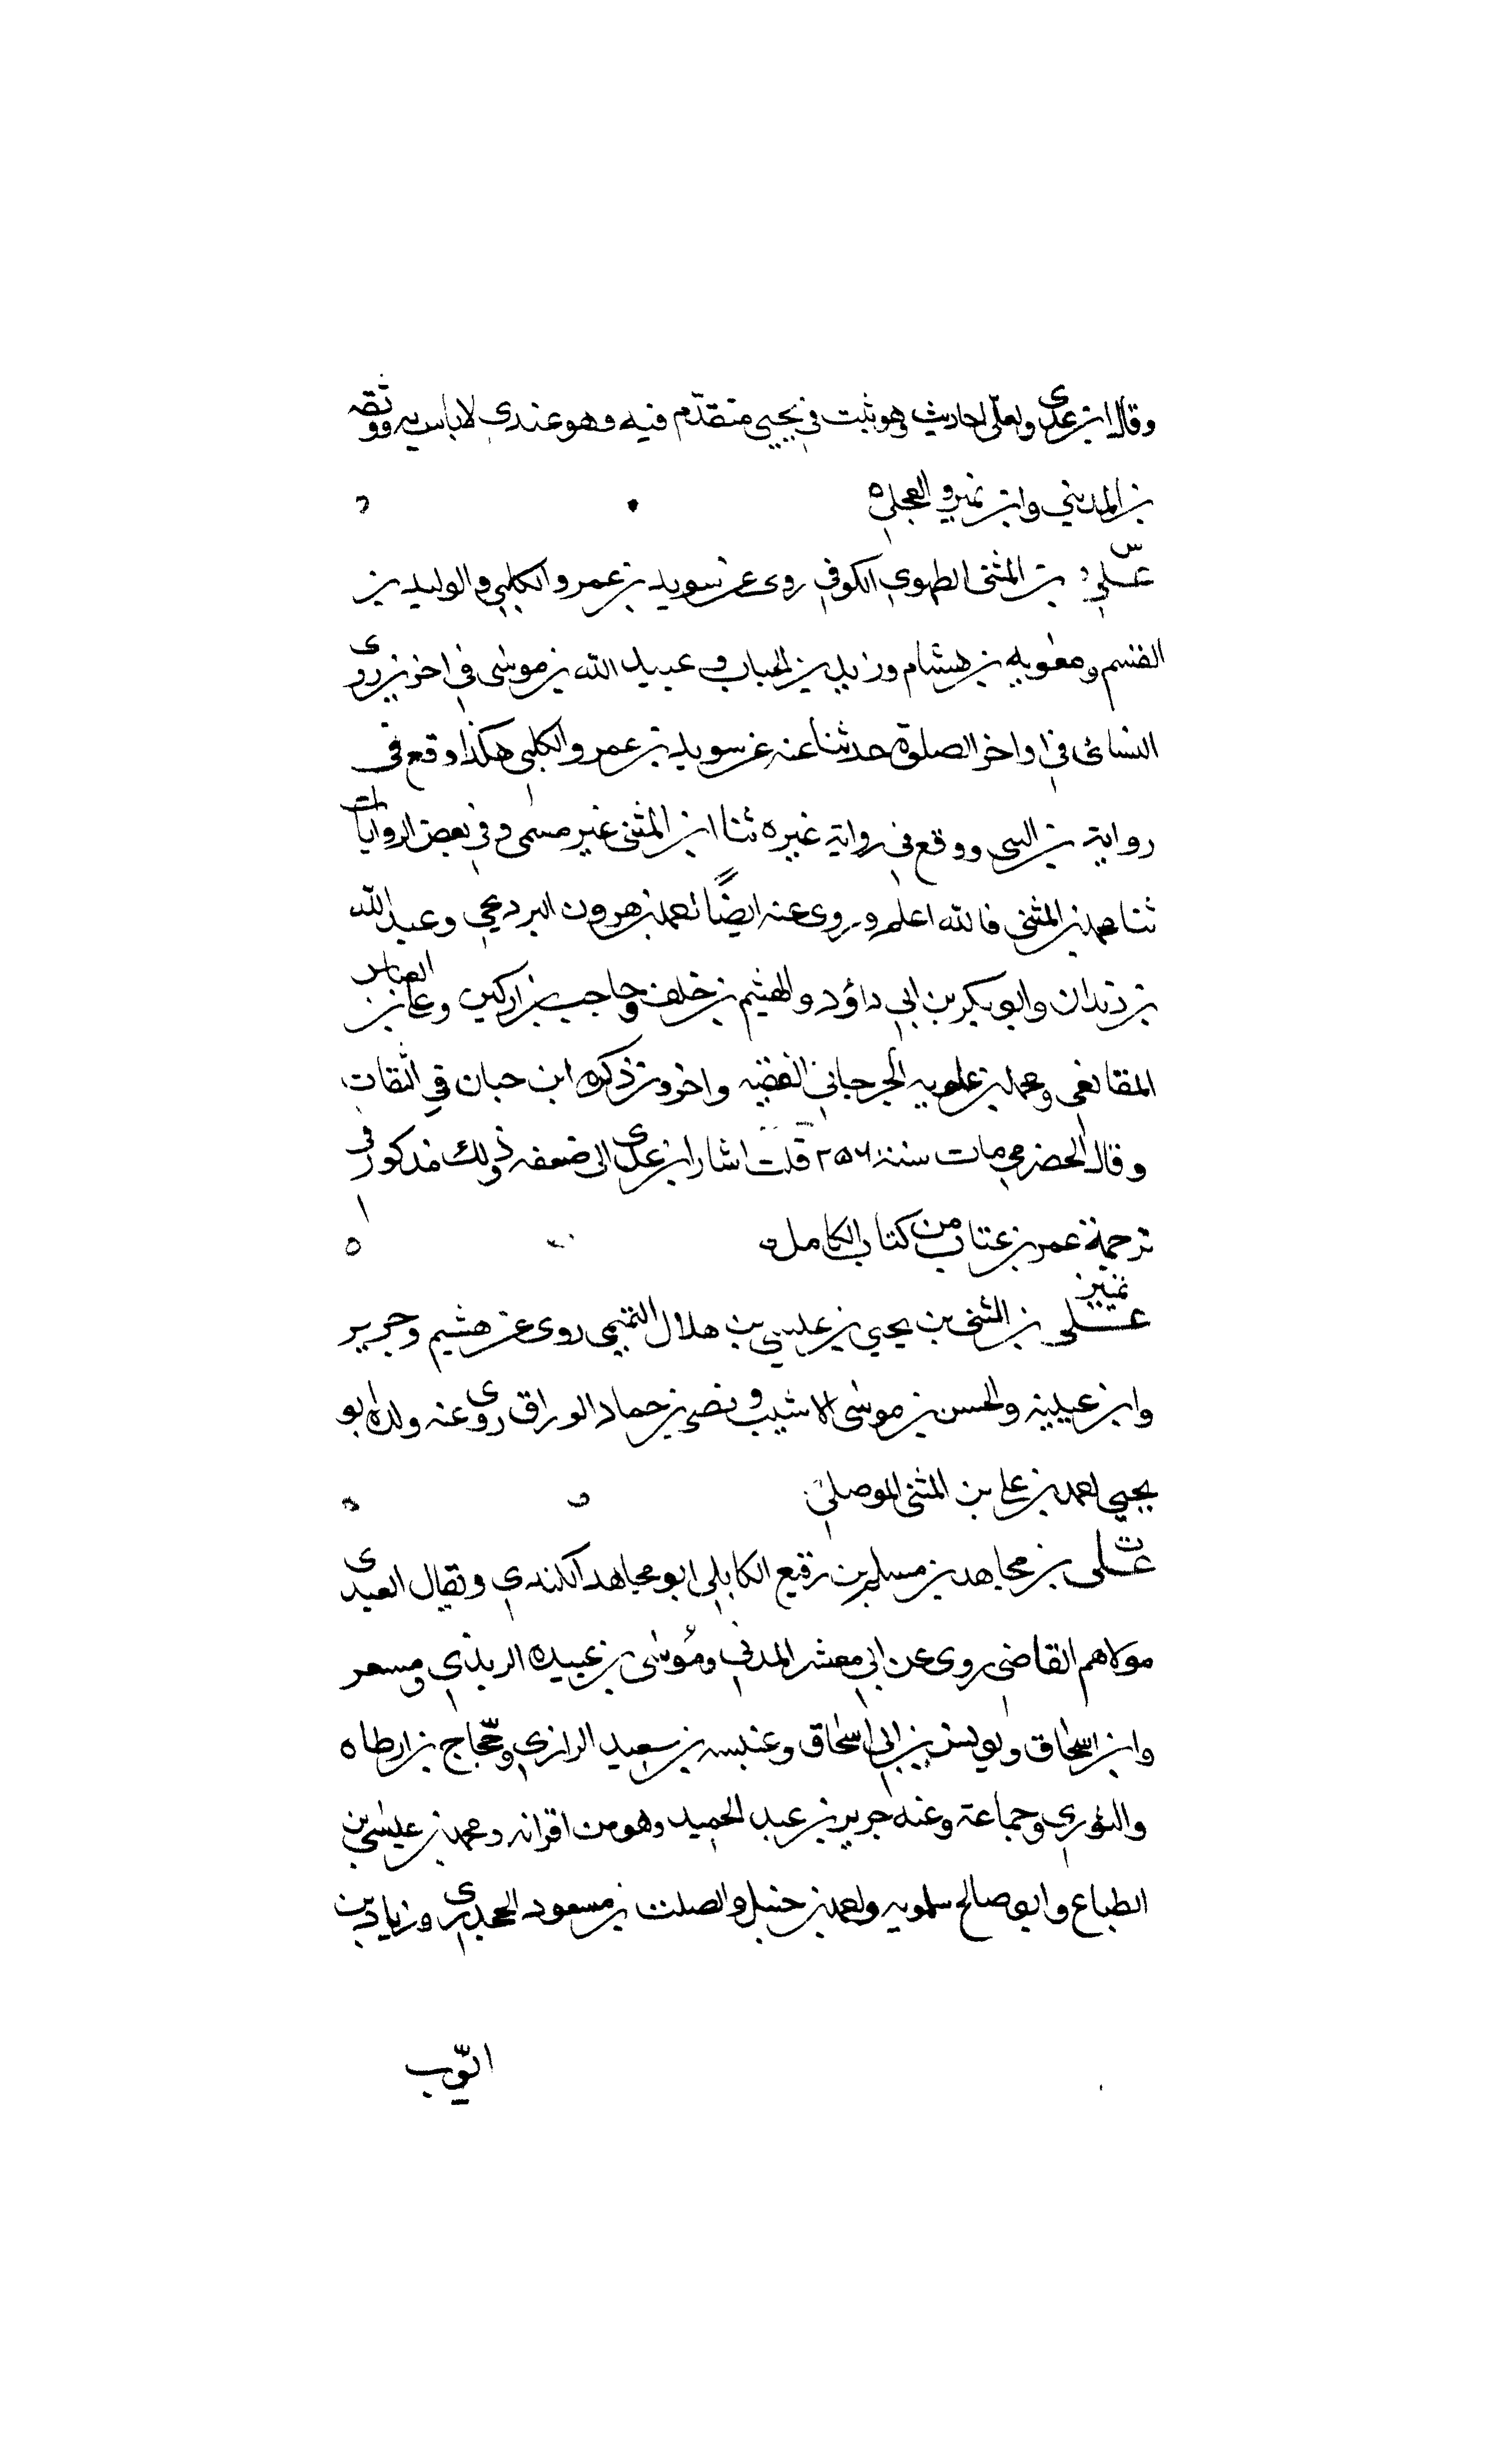 وقال ابن عدي ولعلي احاديث وهو ثبت في يحيى متقدّم فيه وهو عندي لا باس به ووثقه
بن المديني وابن نمير والعجلي ه
س
علي بن المثنى الطهوي الكوفي روى عن سويد بن عمرو الكلبي والوليد بن
القسم ومعويه بن هشام وزيد بن الحباب وعبيد الله بن موسى في اخرين روى
النسائى في اواخر الصلوة حدثنا عنه عن سويد بن عمرو الكلبي هكذا وقع في
رواية بن السى ووقع في رواية غيره ثنا ابن المثنى غير مسمى وفي بعض الروايات
ثنا محمد بن المثنى فالله اعلم وروى عنه ايضًا احمد بن هرون البردعي وعبد الله
بن زيدان وابو بكر بن ابي داؤد والهيثم بن خلف وحاجب بن اركين وعلي بن العباس
المقانعى ومحمد بن علويه الجرجاني الفقيه واخرون ذكره ابن حبان في الثقات
وقال الحضرمي مات سنة ٢٥٦ قلت اشار ابن عدى الى ضعفه وذلك مذكور في
ترجمة عمر بن عتاب من كتاب الكامل ه
تمييز
علي بن المثنى بن يحيي بن عيسي بن هلال التميمى روى عن هشيم وجرير
وابن عيينة والحسن بن موسى الاشيب ونصر بن حماد الوراق روى عنه ولده ابو
يحيي احمد بن علي بن المثنى الموصلي
ت
علي بن مجاهد بن مسلم بن رفيع الكابلي ابو مجاهد الكندي ويقال العبدى
مولاهم القاضي روى عن ابي معشر المدني وموسى بن عبيده الربذي ومسعر
وابن اسحاق ويونس بن ابي اسحاق وعنبسه بن سعيد الرازي وحجّاج بن ارطاه
والثوري وجماعة وعنه جرير بن عبد الحميد وهو من اقرانه ومحمد بن عيسي بن
الطباع وابو صالح سلمويه واحمد بن حنبل والصلت بن مسعود الجحدرى وزياد بن
ايّوب